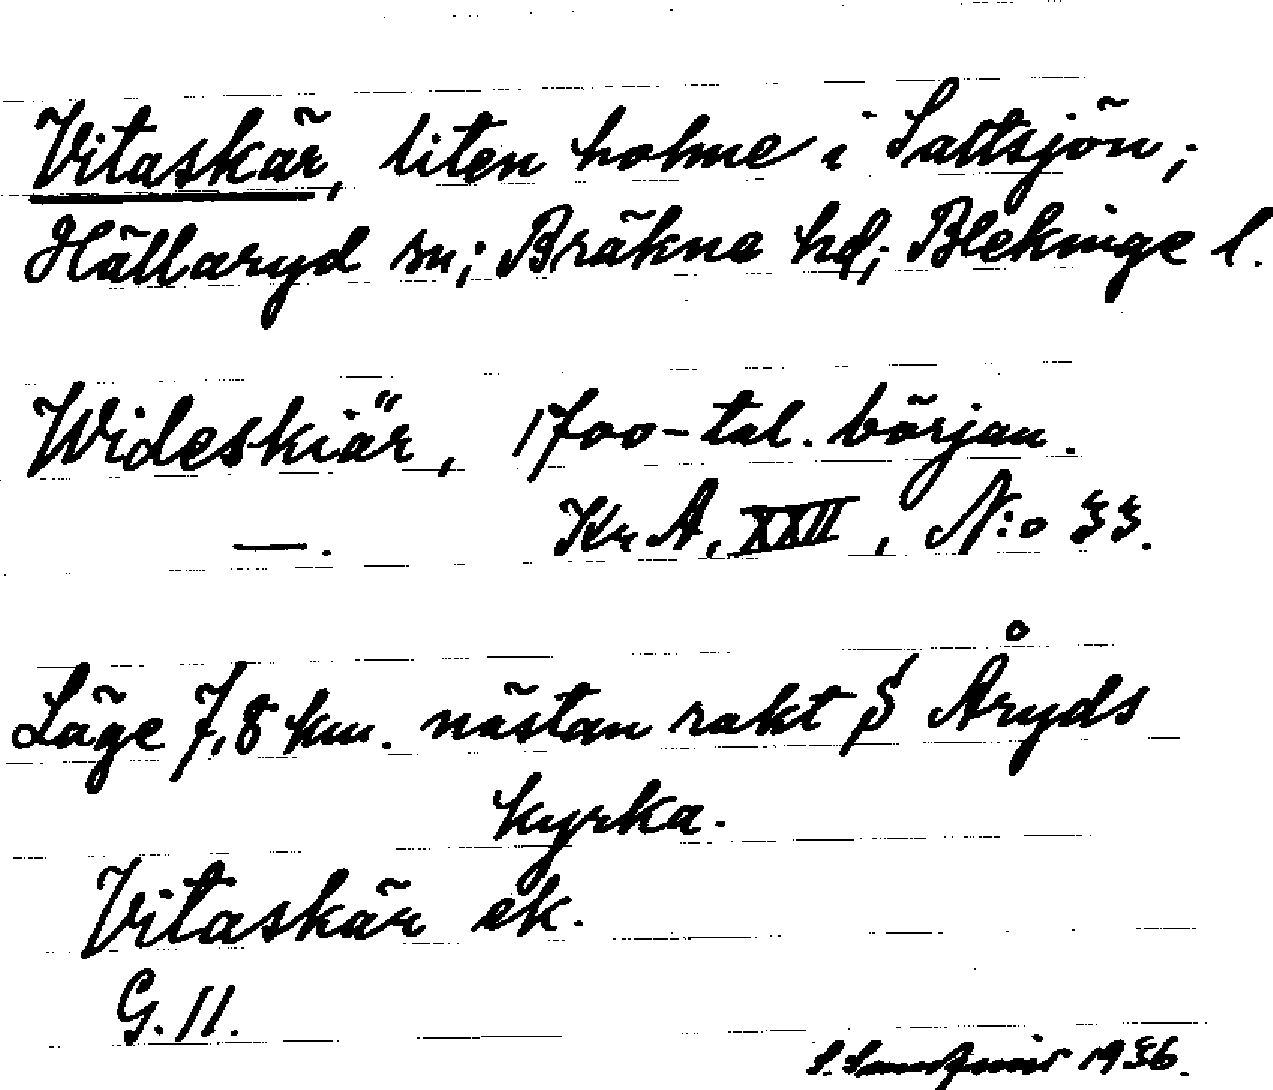 Vitaskär, liten holme i Saltsjön;
Hällaryd sn; Bräkne hd; Blekinge l.
Wideskiär, 1700-tal. början.
—. Kr A, XXII, N:o 33.
Läge 7,8 km. nästan rakt S Åryds
kyrka.
Vitaskär ek.
G. 11.
S. 1936.